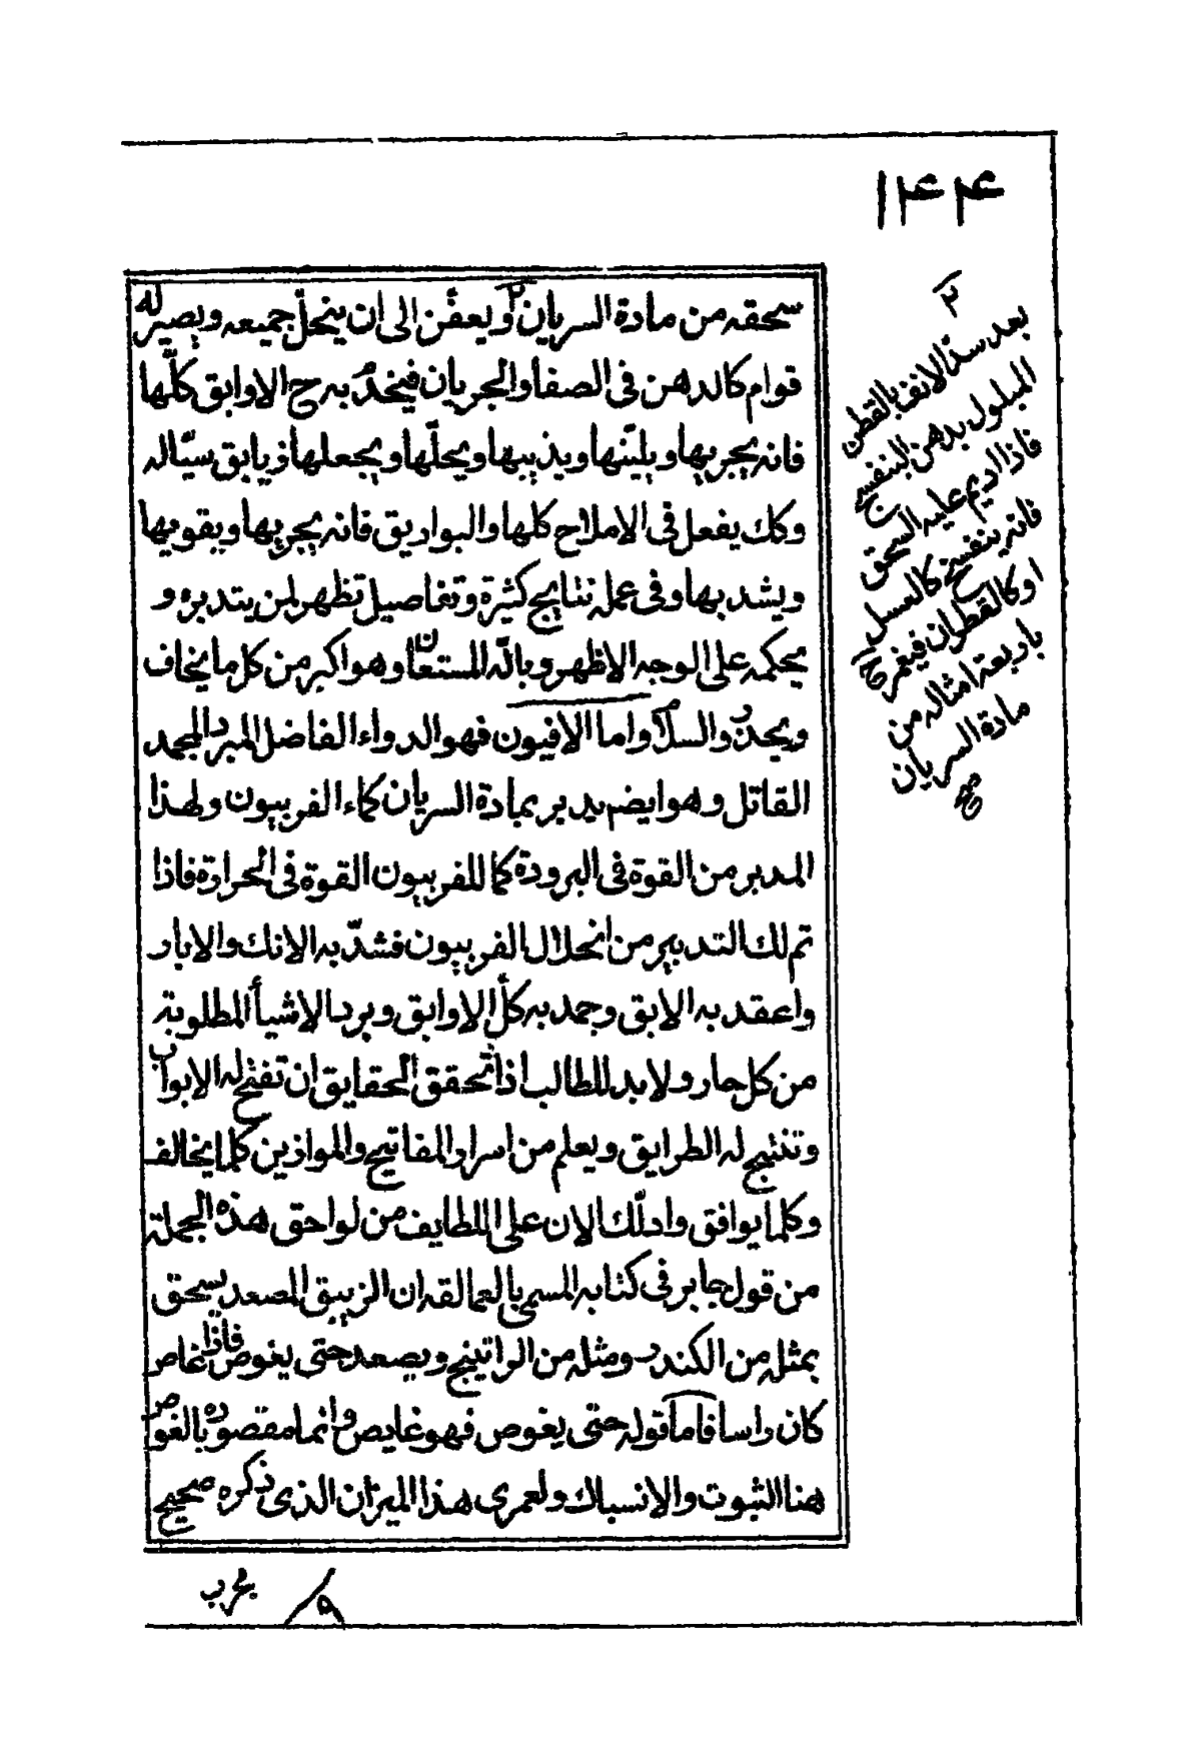 ١٤٤
سحقه من مادة السريان ٢ ويعفّن الى ان ينحلّ جميعه ويصير له
قوام كالدهن فى الصفاء والجريان فيخدم به رح الاوابق كلّها
فانه يجريها ويليّنها ويذيبها ويحلّها ويجعلها زيابق سيّاله
وكك يفعل فى الاملاح كلها والبواريق فانه يجريها ويقويها
ويشد بها وفى عمله نتايج كثيرة وتفاصيل تظهر لمن يتدبره و
يحكمه على الوجه الاظهر وبالله المستعان وهو اكبر من كل ما يخاف
ويحذر والسلام واما الافيون فهو الدواء الفاضل المبرد المجمد
القاتل وهو ايضم يدبر بمادة السريان كماء الفربيون ولهذا
المدبر من القوة فى البرودة كما للفربيون القوة فى الحرارة فاذا
تم لك التدبير من انحلال الفربيون فشدّ به الانك والابار
واعقد به الابق وجمد به كلّ الاوابق وبرد الاشيأ المطلوبة
من كل حار ولا بد للطالب اذا تحقق الحقايق ان تفتح له الابواب
وتنتيج له الطرايق ويعلم من اسرار المفاتيح والموازين كلما يخالف
وكلما يوافق وادلّك الان على اللطايف من لواحق هذه الجملة
من قول جابر فى كتابه المسمى بالعمالقه ان الزيبق المصعد يسحق
بمثله من الكندر ومثله من الراتينج ويصعد حتى يغوص فاذا غاص
كان راسا فاما قوله حتى يغوص فهو غايص وانما مقصوده بالغوص
هنا الثبوت والانسباك ولعمرى هذا الميزان الذى ذكره صحيح
٢
بعد سدّ الانف بالقطن
المبلول بدهن البنفسج
فاذا اديم عليه السحق
فانه ينفسخ كالعسل
او كالقطران فيغمر ح
باربعة امثاله من
مادة السريان
صح
مجرب